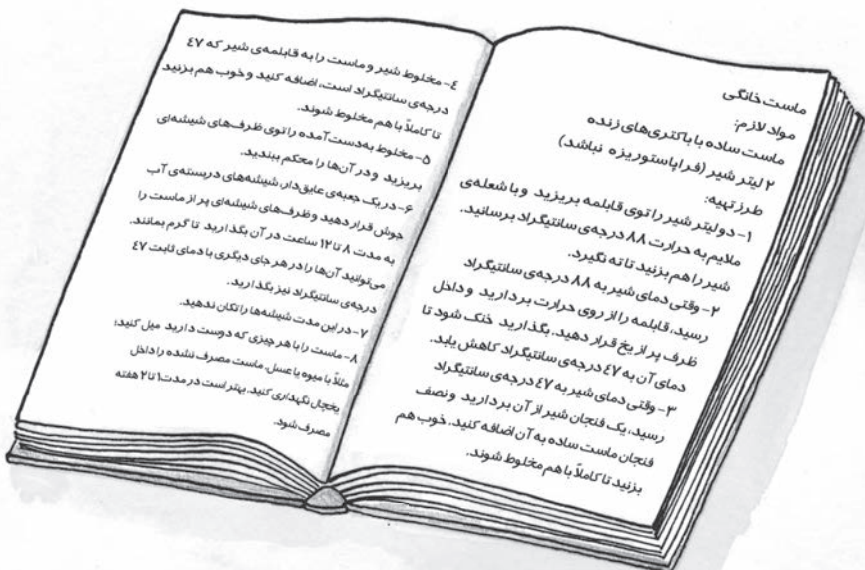 ماست خانگی
مواد لازم:
ماست ساده با باکتری‌های زنده
۲ لیتر شیر (فراپاستوریزه نباشد)
طرز تهیه:
۱- دو لیتر شیر را توی قابلمه بریزید و با شعله‌ی
ملایم به حرارت ۸۸ درجه‌ی سانتیگراد برسانید.
شیر را هم بزنید تا ته نگیرد.
۲- وقتی دمای شیر به ۸۸ درجه‌ی سانتیگراد
رسید، قابلمه را از روی حرارت بردارید و داخل
ظرف پر از یخ قرار دهید. بگذارید خنک شود تا
دمای آن به ۴۷ درجه‌ی سانتیگراد کاهش یابد.
۳- وقتی دمای شیر به ۴۷ درجه‌ی سانتیگراد
رسید، یک فنجان شیر از آن بردارید و نصف
فنجان ماست ساده به آن اضافه کنید. خوب هم
بزنید تا کاملاً با هم مخلوط شوند.
۴- مخلوط شیر و ماست را به قابلمه‌ی شیر که ۴۷
درجه‌ی سانتیگراد است، اضافه کنید و خوب هم بزنید
تا کاملاً با هم مخلوط شوند.
۵- مخلوط به‌دست‌آمده را توی ظرف‌های شیشه‌ای
بریزید و در آن‌ها را محکم ببندید.
۶- در یک جعبه‌ی عایق‌دار، شیشه‌های دربسته‌ی آب
جوش قرار دهید و ظرف‌های شیشه‌ای پر از ماست را
به مدت ۸ تا ۱۲ ساعت در آن بگذارید تا گرم بمانند.
می‌توانید آن‌ها را در هر جای دیگری با دمای ثابت ۴۷
درجه‌ی سانتیگراد نیز بگذارید.
۷- در این مدت شیشه‌ها را تکان ندهید.
۸- ماست را با هر چیزی که دوست دارید میل کنید؛
مثلاً با میوه یا عسل. ماست مصرف نشده را داخل
یخچال نگهداری کنید. بهتر است در مدت ۱ تا ۲ هفته
مصرف شود.